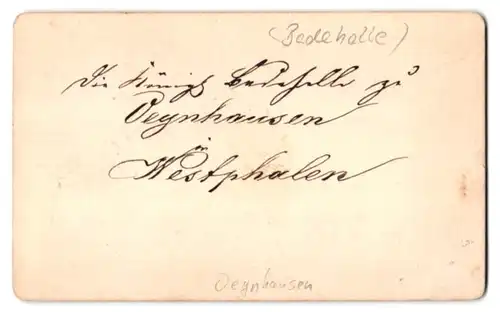 (Badehalle)
Die Königl Badehalle zu
Oeynhausen
in
Westphalen
Oeynhausen